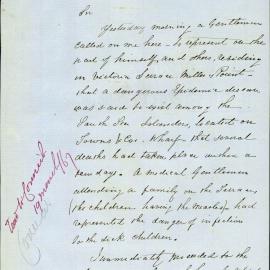 Sir
Yesterday morning a Gentleman
called on me here to represent on the
part of himself, and others, residing
in Victoria Terrace Millers Point
that a dangerous Epidemic disease
was said to exist among the
South Sea Islanders, located on
Towns & Co. Wharf that several
deaths had taken place within a
few days. A medical Gentleman
attending a family on the Terrace,
(the children having the measles) had
represented the danger of infection
to the sick children.
I immediately proceeded to the